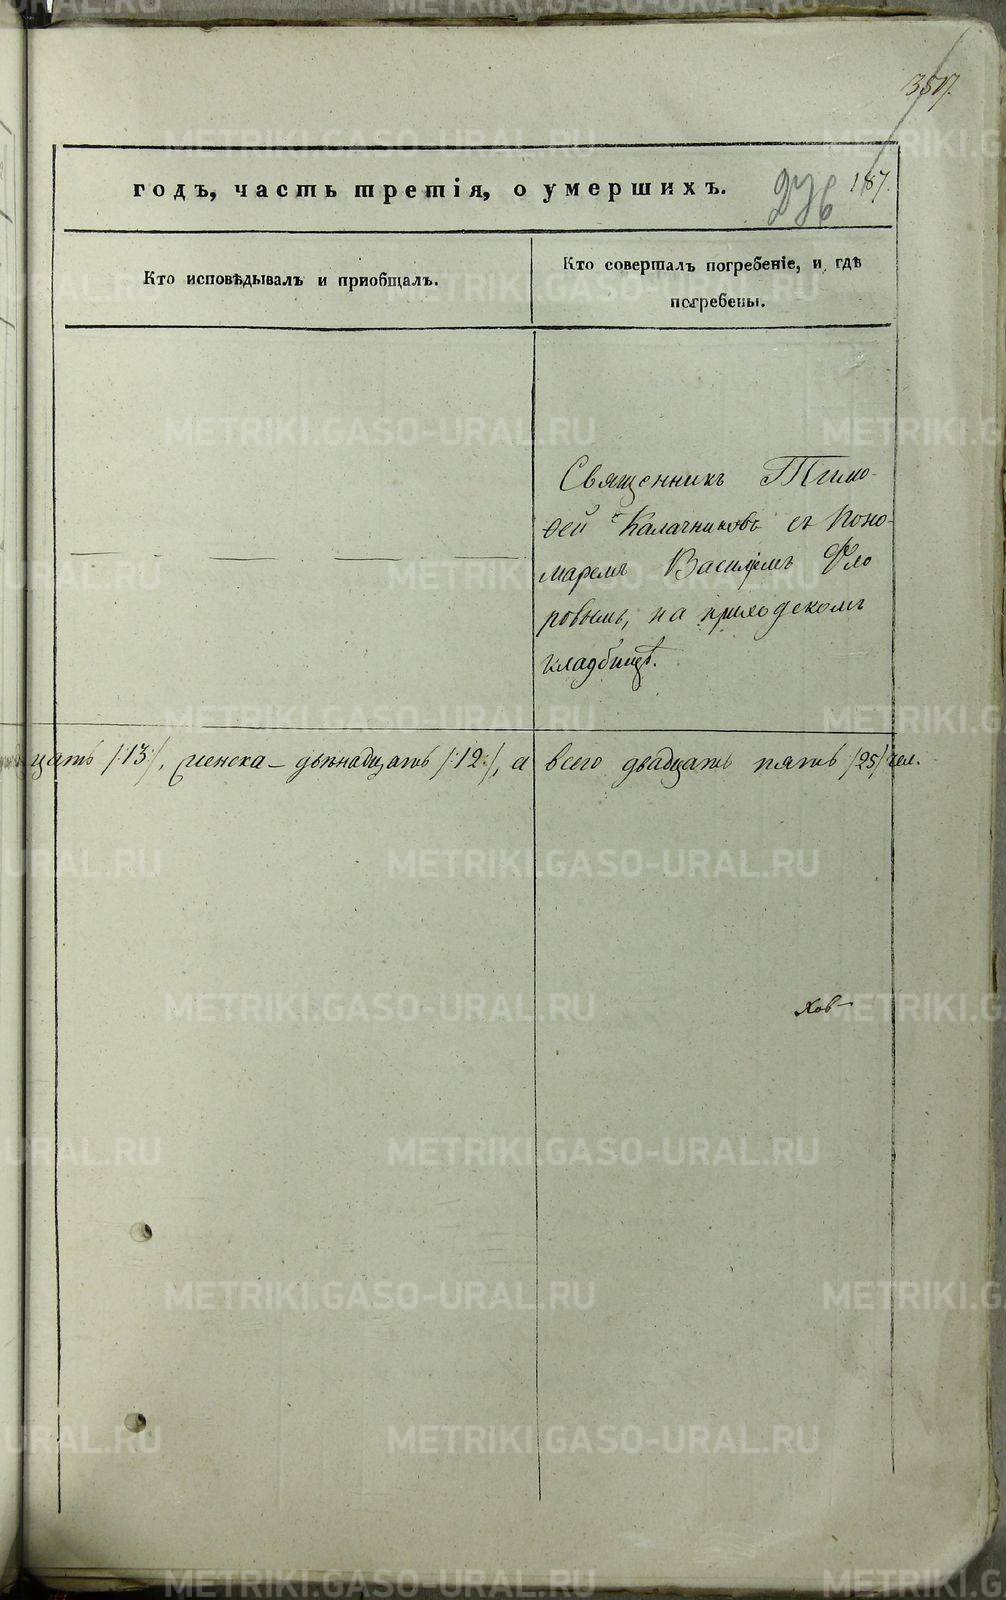 3507.
годъ, часть третія, о умершихъ.
276
187.
Кто исповѣдывалъ и пріобщалъ.
Кто совершалъ погребеніе, и гдѣ
погребены.
Священникъ Тимо-
ѳей Калачниковъ съ Поно-
маремъ Василіемъ Фло
ровымъ, на приходскомъ
кладбищѣ.
цать /:13:/, женска – двѣнадцать /:12:/, а всего двадцать пять /25/ чел.
ков-
METRIKI.GASO-URAL.RU